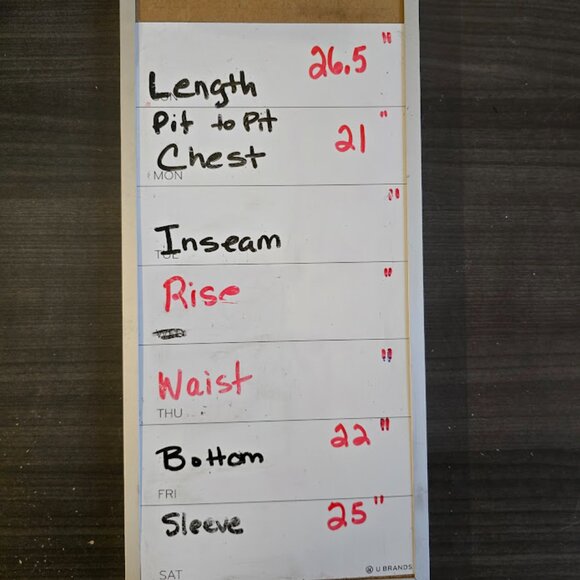 Length 26.5"
Pit to Pit
Chest 21"
MON
Inseam "
Rise "
Waist "
THU
Bottom 22"
FRI
Sleeve 25"
SAT
U BRANDS